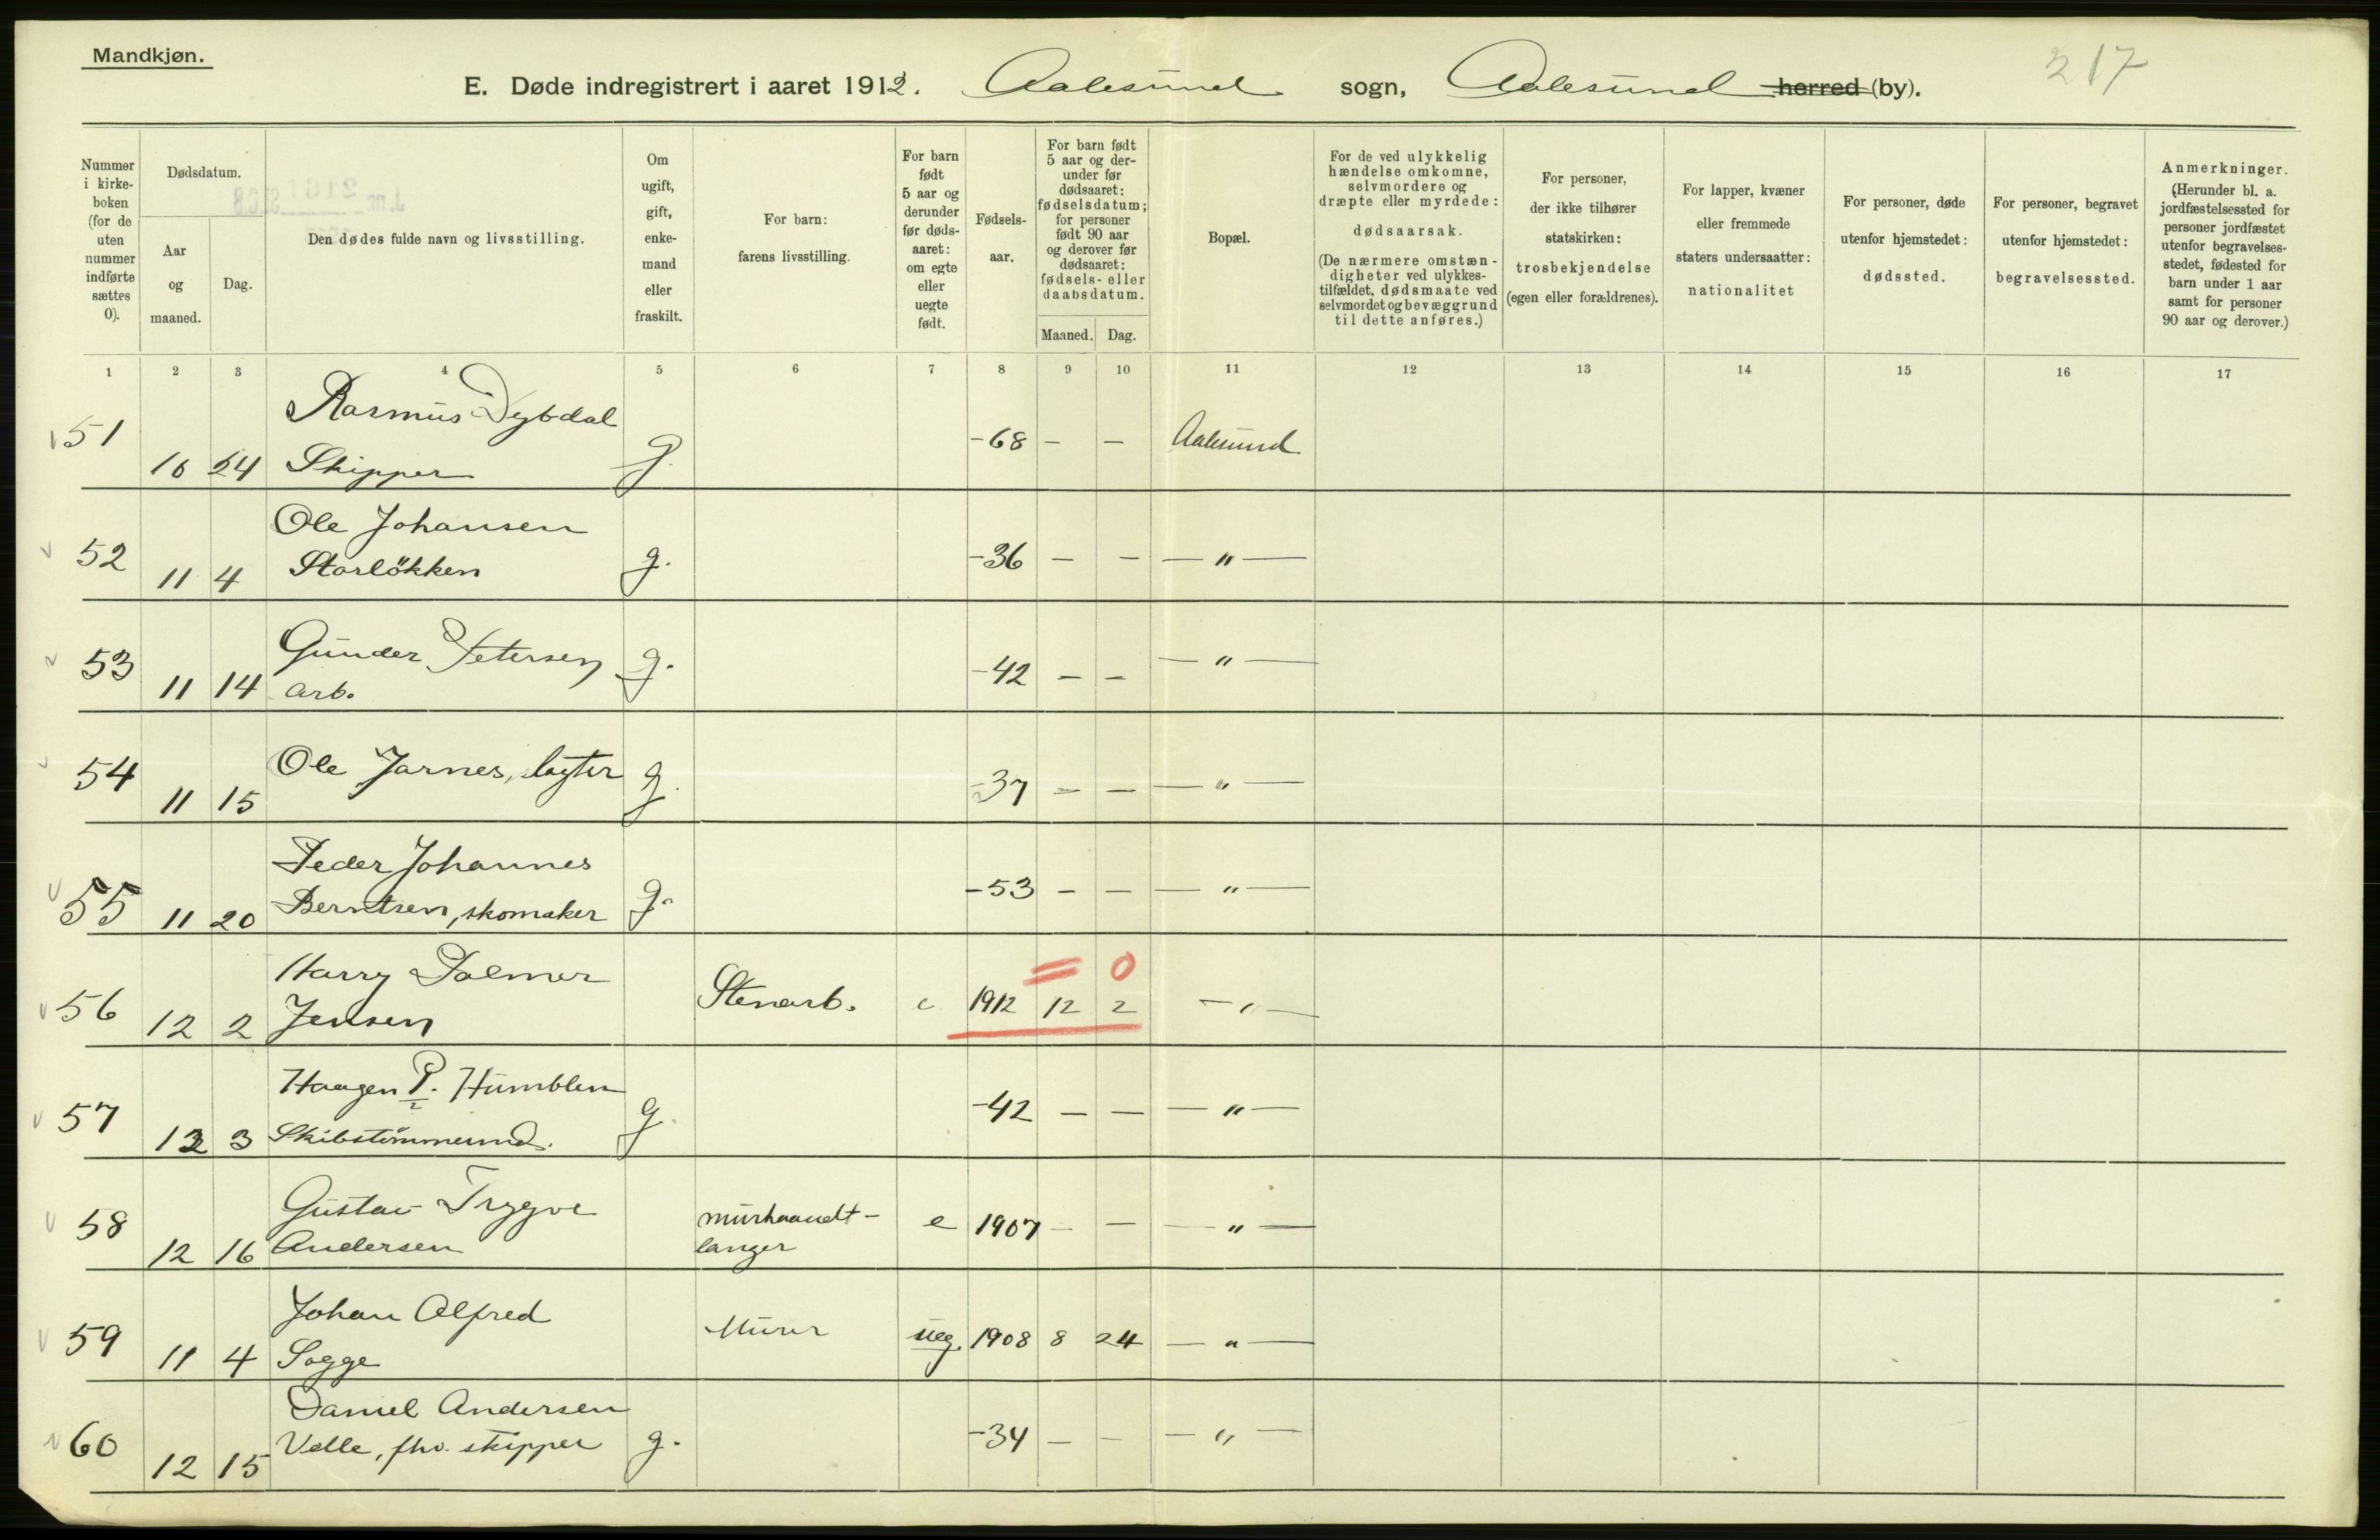 Mandkjøn.
E. Døde indregistrert i aaret 1912. Aalesund sogn, Aalesund herred (by). 217
Nummer i kirkeboken (for de uten nummer indførte sættes 0).
Dødsdatum.
Aar og maaned.
Dag.
Den dødes fulde navn og livsstilling.
Om ugift, gift, enkemand eller fraskilt.
For barn: farens livsstilling.
For barn født 5 aar og derunder før dødsaaret: om egte eller uegte født.
Fødselsaar.
For barn født 5 aar og derunder før dødsaaret: fødselsdatum; for personer født 90 aar og derover før dødsaaret: fødsels- eller daabsdatum.
Maaned. Dag.
Bopæl.
For de ved ulykkelig hændelse omkomne, selvmordere og dræpte eller myrdede: dødsaarsak. (De nærmere omstændigheter ved ulykkestilfældet, dødsmaate ved selvmordet og bevæggrund til dette anføres.)
For personer, der ikke tilhører statskirken: trosbekjendelse (egen eller forældrenes).
For lapper, kvæner eller fremmede staters undersaatter: nationalitet
For personer, døde utenfor hjemstedet: dødssted.
For personer, begravet utenfor hjemstedet: begravelsessted.
Anmerkninger. (Herunder bl. a. jordfæstelsessted for personer jordfæstet utenfor begravelsesstedet, fødested for barn under 1 aar samt for personer 90 aar og derover.)
1 2 3 4 5 6 7 8 9 10 11 12 13 14 15 16 17
Rasmus Dybdal
51 10 24 Skipper g. -68 - - Aalesund
Ole Johansen
52 11 4 Storløkken g. -36 - - - " -
Gunder Petersen
53 11 14 arb. g. -42 - - - " -
54 11 15 Ole Jarnes, slagter g. -37 - - - " -
Peder Johannes
55 11 20 Berntsen, skomaker g. -53 - - - " -
Harry Palmer = 0
56 12 2 Jensen Stenarb. e 1912 12 2 - " -
Haagen P. Humblen
57 12 3 Skibstømmermd. g. -42 - - - " -
Gustav Trygve murhaandt-
58 12 16 Andersen langer e 1907 - - - " -
Johan Alfred
59 11 4 Sogge Murer ueg. 1908 8 24 - " -
Daniel Andersen
60 12 15 Velle, fhv. skipper g. -34 - - - " -